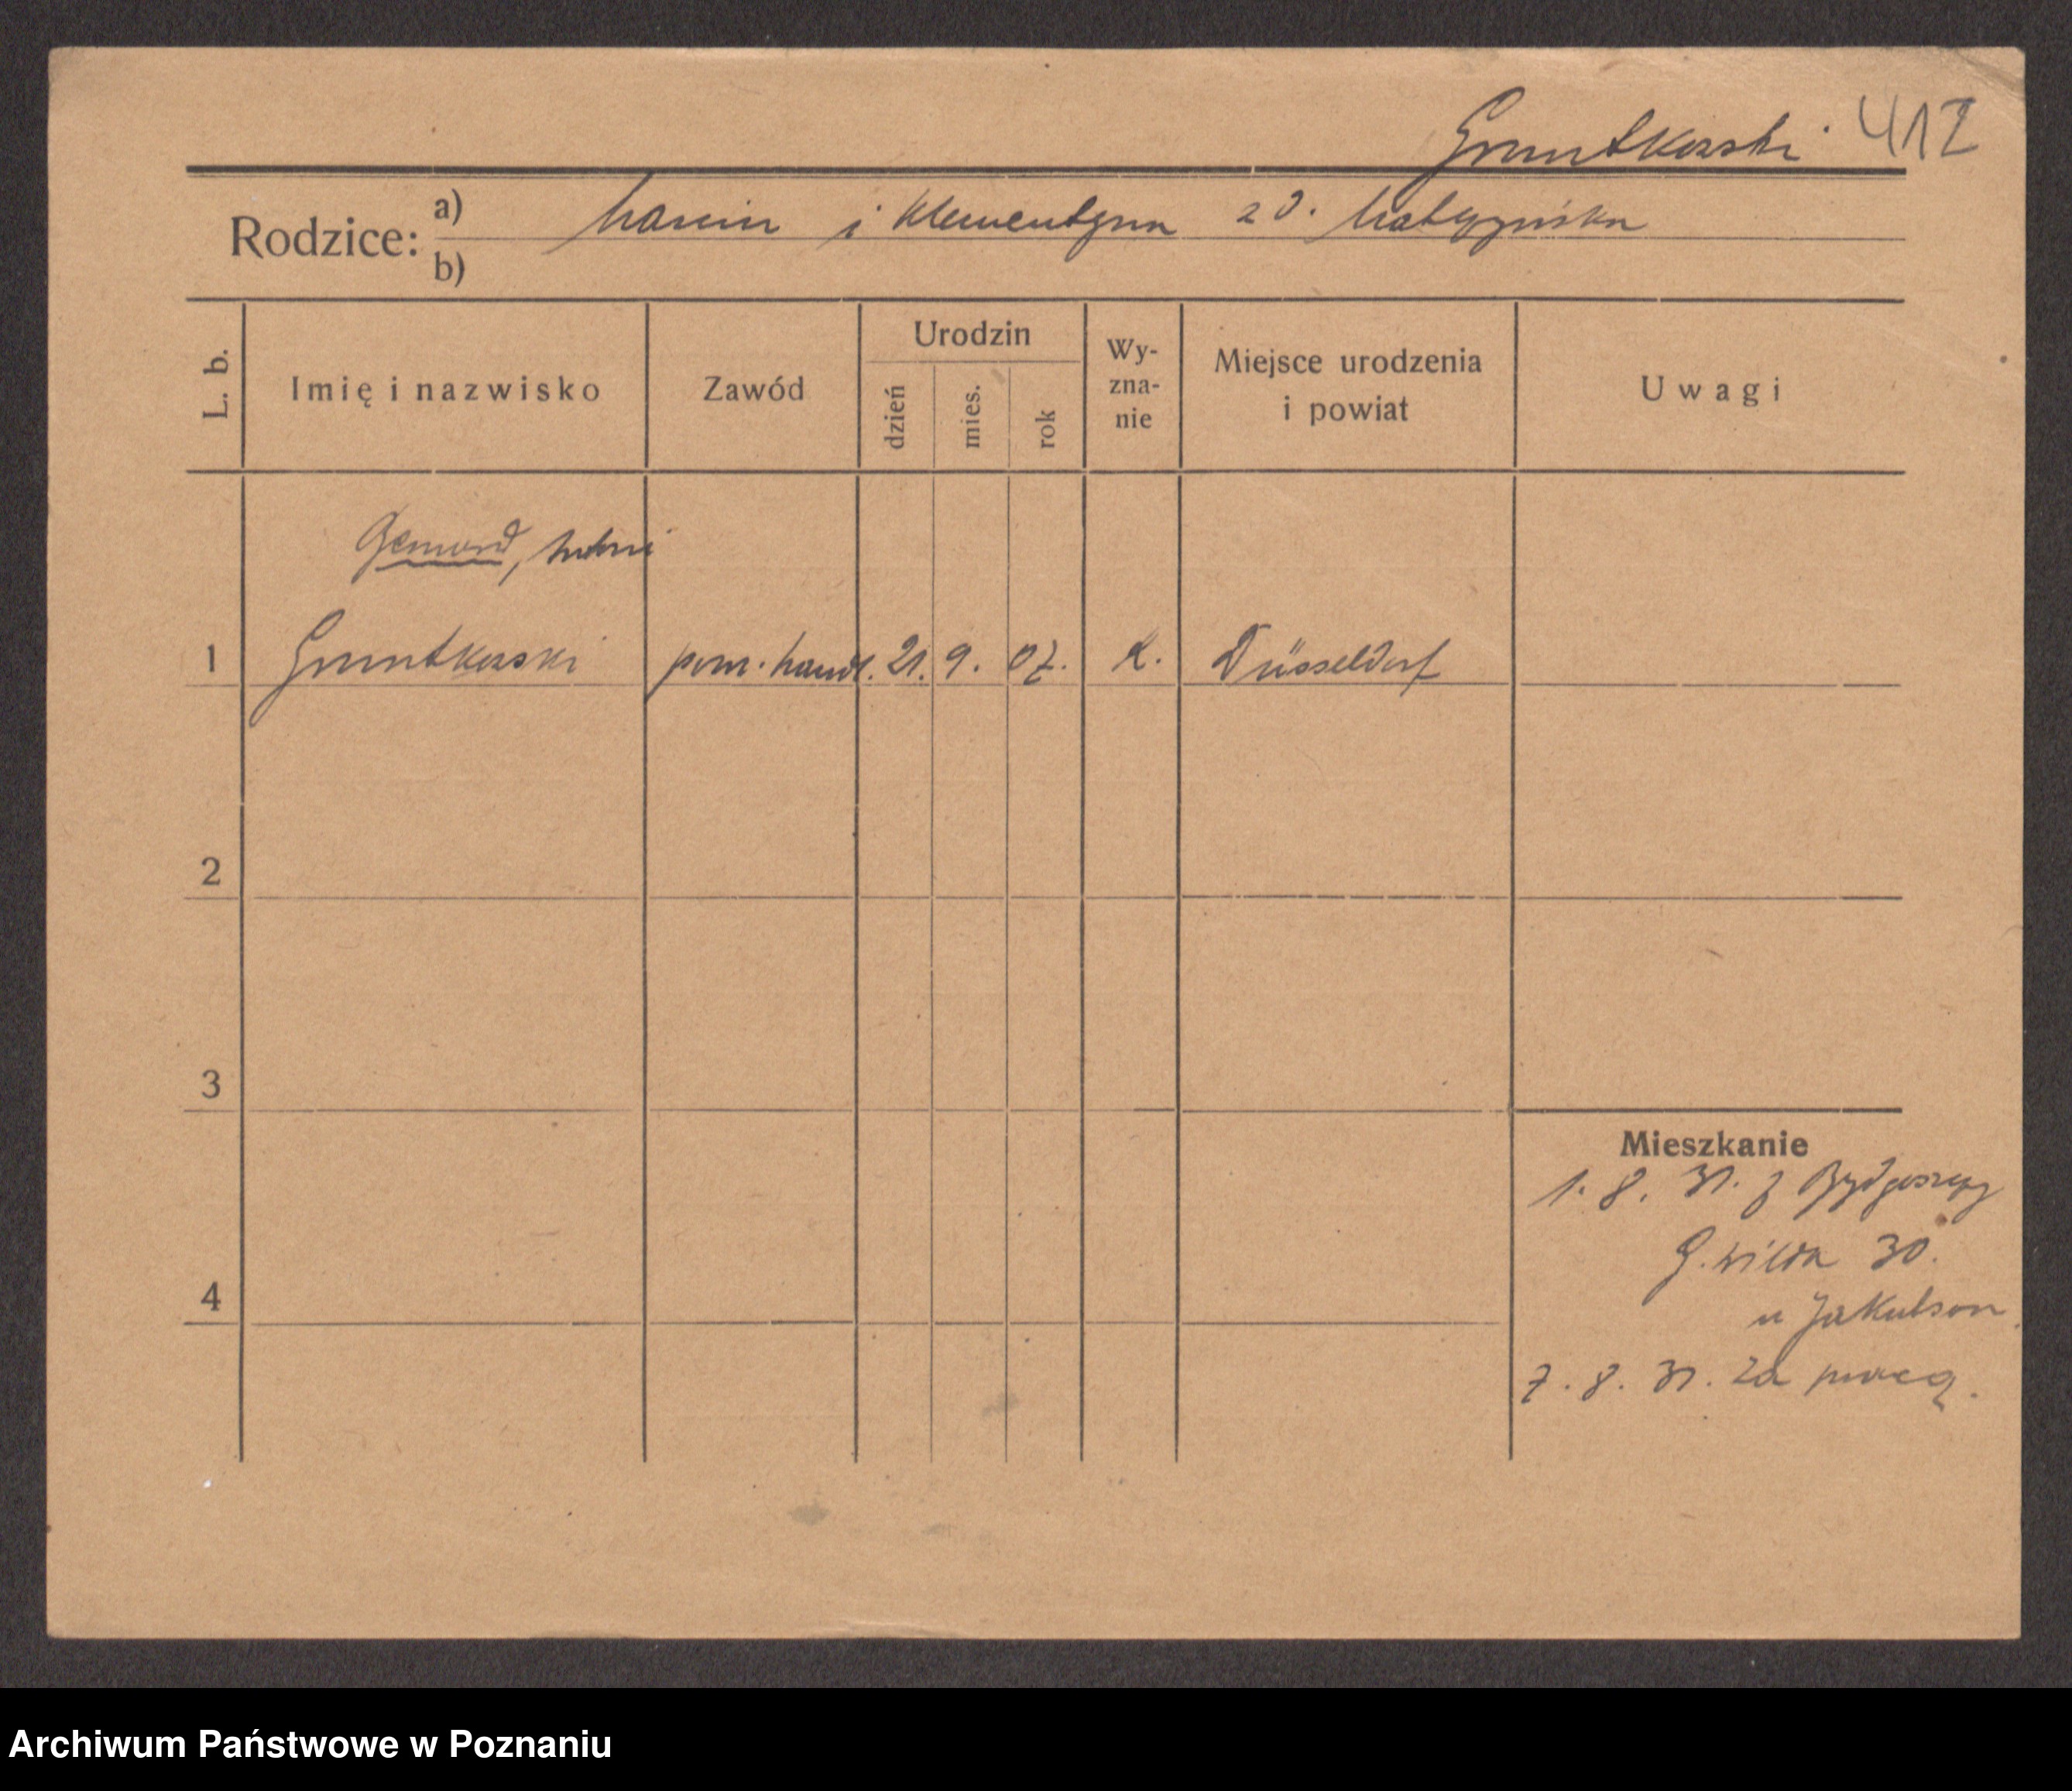 Gruntkowski 412
Rodzice: a) Marcin i Klementyna z d.
b)
L. b.
Imię i nazwisko
Zawód
Urodzin
dzień
mies.
rok
Wy-
zna-
nie
Miejsce urodzenia
i powiat
Uwagi
1 Gruntkowski pom. handl. 21. 9. 07. K. Düsseldorf
2
3
4
Mieszkanie
1. 8. 31. z Bydgoszczy
G. Wilda 30.
u Jakubson
7. 8. 31. za pracą.
Archiwum Państwowe w Poznaniu